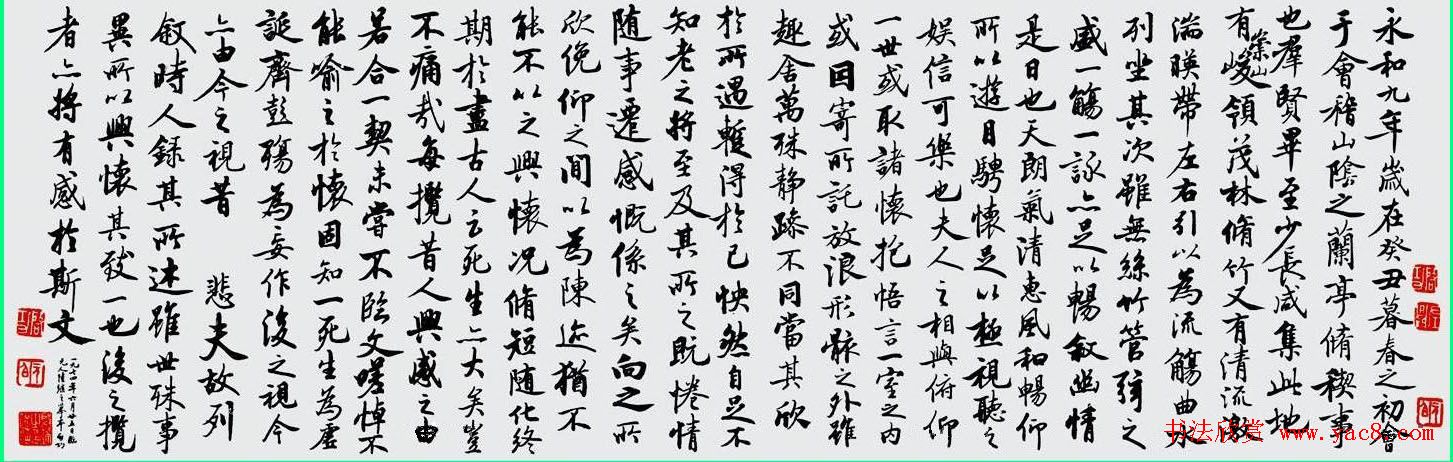 永和九年歲在癸丑暮春之初會
于會稽山陰之蘭亭脩稧事
也羣賢畢至少長咸集此地
有崇山峻領茂林脩竹又有清流激
湍暎帶左右引以為流觴曲水
列坐其次雖無絲竹管弦之
盛一觴一詠亦足以暢敘幽情
是日也天朗氣清惠風和暢仰
所以遊目騁懷足以極視聽之
娛信可樂也夫人之相與俯仰
一世或取諸懷抱悟言一室之內
或因寄所託放浪形骸之外雖
趣舍萬殊靜躁不同當其欣
於所遇暫得於己怏然自足不
知老之將至及其所之既惓情
随事遷感慨係之矣向之所
欣俛仰之間以為陳迹猶不
能不以之興懷況脩短随化終
期於盡古人云死生亦大矣豈
不痛哉每攬昔人興感之由
若合一契未嘗不臨文嗟悼不
能喻之於懷固知一死生為虛
誕齊彭殤為妄作後之視今
亦由今之視昔 悲夫故列
敘時人錄其所述雖世殊事
異所以興懷其致一也後之攬
者亦將有感於斯文
书法欣赏 www.yac8.com